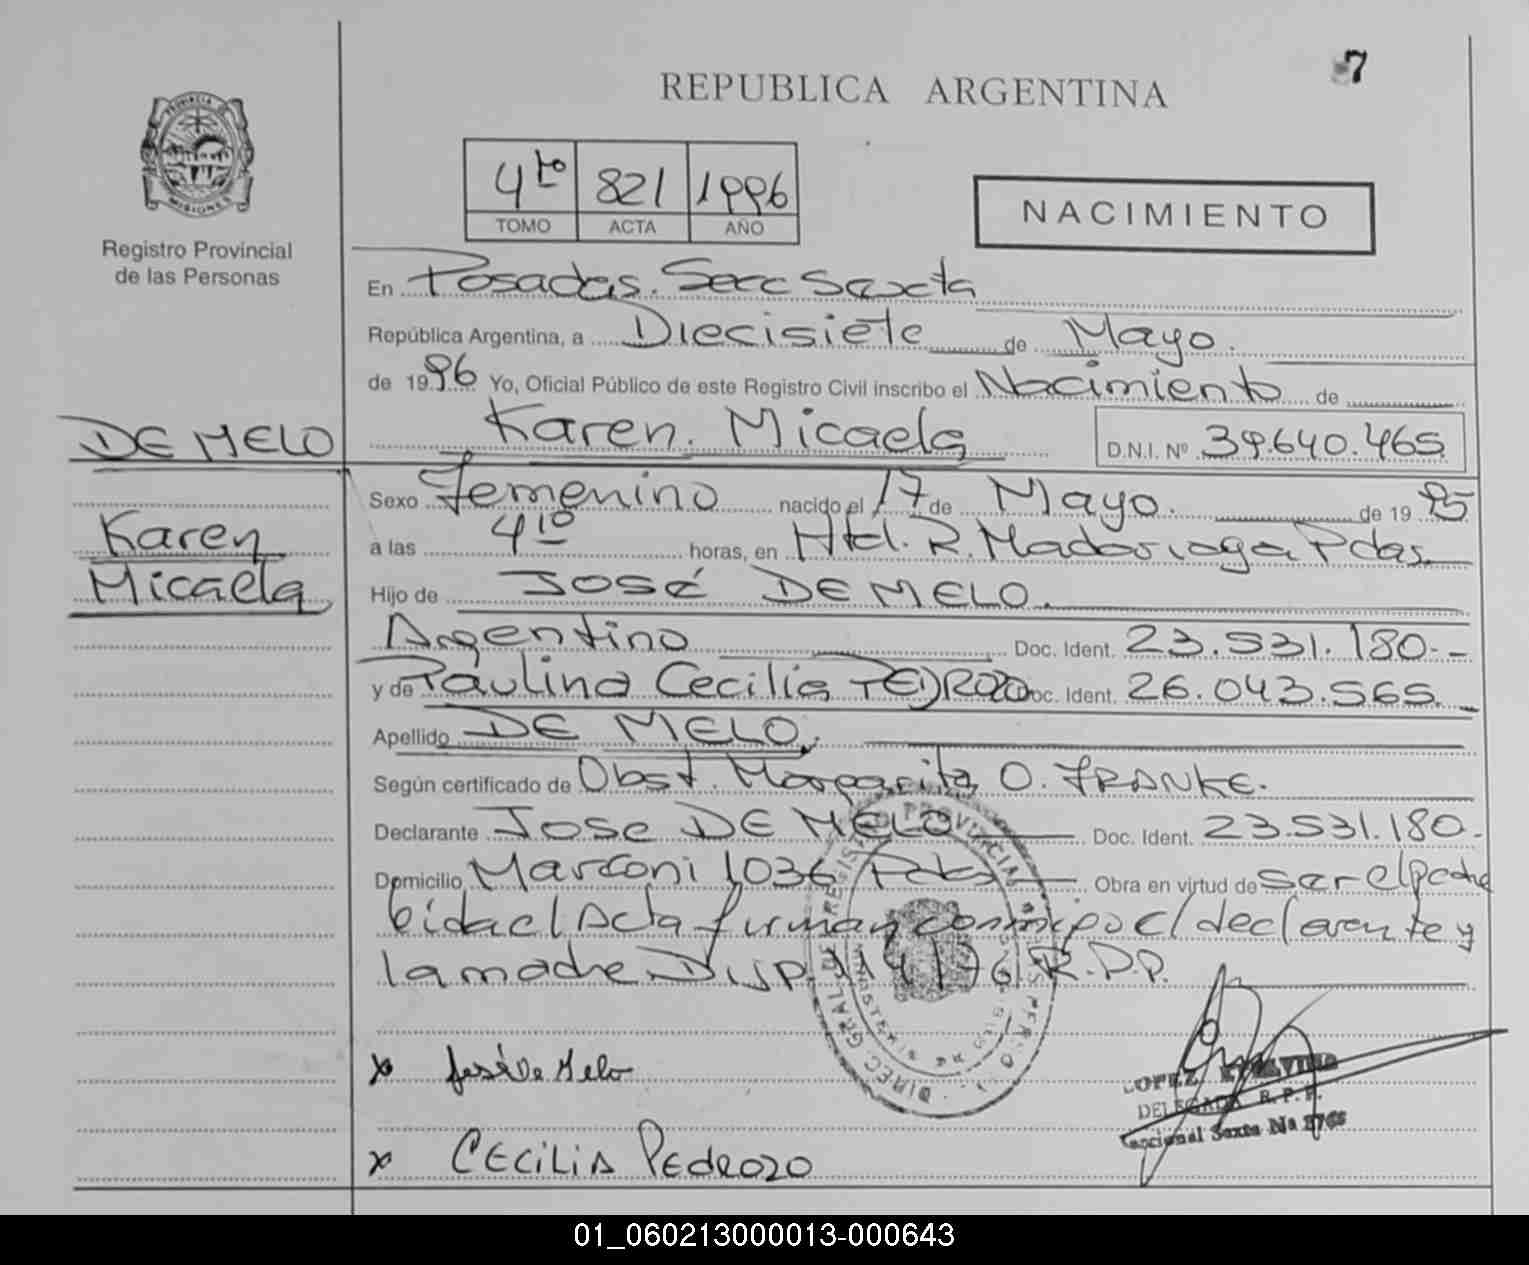 7
REPUBLICA ARGENTINA
PROVINCIA
MISIONES
Registro Provincial
de las Personas
4to 821 1996
TOMO ACTA AÑO
NACIMIENTO
En Posadas. Secc Sexta
República Argentina, a Diecisiete de Mayo.
de 1996 Yo, Oficial Público de este Registro Civil inscribo el Nacimiento de
DE MELO
Karen Micaela D.N.I. Nº 39.640.465
Sexo Femenino nacido el 17 de Mayo. de 1995
Karen
Micaela
a las 4 10 horas, en Htal. R. Madariaga Pdas.
Hijo de José DE MELO.
Argentino Doc. Ident. 23.531.180.-
y de Paulina Cecilia PEDROZO Doc. Ident. 26.043.565.
Apellido DE MELO.
Según certificado de Obst. Margarita O. FRANKE.
Declarante Jose DE MELO Doc. Ident. 23.531.180.
Domicilio Marconi 1036 Pdas Obra en virtud de ser el padre
Leida el Acta firman conmigo el declarante y
la madre Disp 114/76 R.P.P.
José De Melo
LOPEZ
DELEGADA R.P.P.
Seccional Sexta Na
x CECILIA PEDROZO
01_060213000013-000643